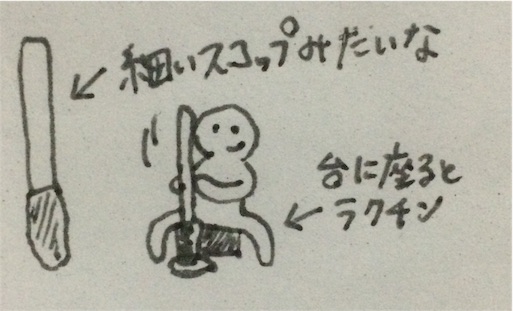 細いスコップみたいな
台に座ると
ラクチン